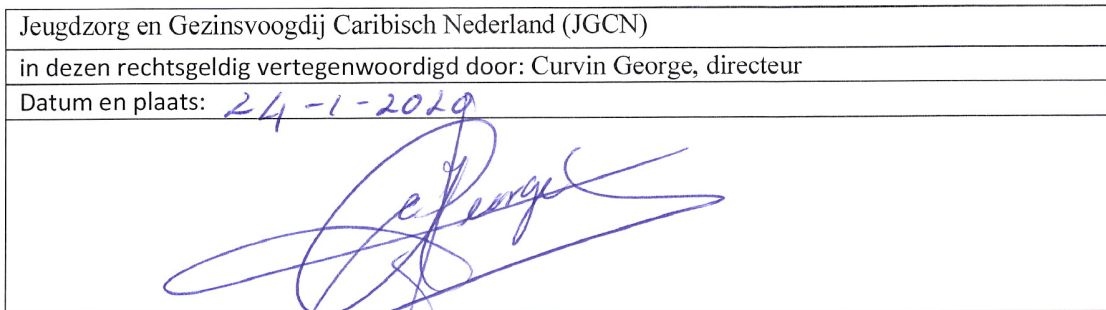 Jeugdzorg en Gezinsvoogdij Caribisch Nederland (JGCN)
in dezen rechtsgeldig vertegenwoordigd door: Curvin George, directeur
Datum en plaats: 24-1-2020